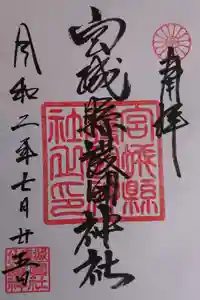 奉拝
宮城縣護国神社
令和二年七月廿五日
宮城縣
社之印